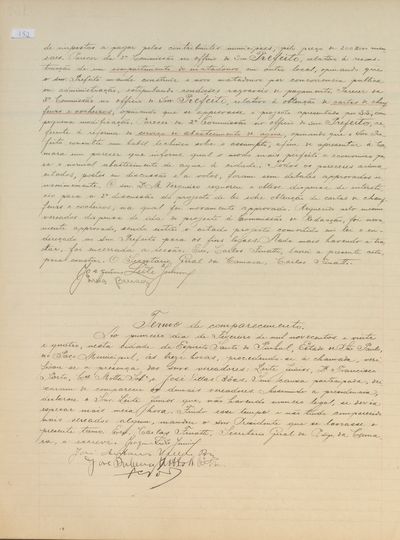 152
de impostos a pagar pelos contribuintes municipaes, pelo preço de
saes. Parecer da 3ª Commissão no officio do Snr. Prefeito, relativo á recons-
trucção de um compartimento do matadouro em outro local, opinando que
o snr. Prefeito mande construir o novo matadouro por concorrencia publica
ou administração, estipulando condições rasoaveis de pagamento. Parecer da
3ª Commissão no officio do Snr. Prefeito, relativo á obtenção de cartas de chauf-
feurs e cocheiros, opinando que se approvasse o projecto apresentado com
pequena modificação. Parecer da 2ª Commissão no officio do Snr. Prefeito, re-
ferente á reforma do serviço de abastecimento de agua, opinando que o Snr. Pre-
feito consulte um habil technico sobre o assumpto, afim de apresentar á Ca-
mara um parecer que informe qual o modo mais perfeito e economico pa-
ra o normal abastecimento de agua á cidade. Todos os pareceres acima
citados, postos em discussão e a votos, foram sem debates approvados u-
nanimemente. O snr. Dr. requereu e obteve dispensa de intersti-
cio para a 2ª discussão do projecto de lei sobre obtenção de cartas de chauf-
feurs e cocheiros, na qual foi novamente approvado. Requerida pelo mesmo
vereador dispensa de ida do projecto á Commissão de Redacção, foi nova-
mente approvado, sendo então o citado projecto convertido em lei e en-
dereçado ao Snr. Prefeito para os fins legaes. Nada mais havendo a tra-
tar, foi encerrada a sessão. Eu, Carlos, lavrei a presente acta,
para constar. O Secretario Geral da Camara, Carlos
Joaquim Leite Junior
Termo de comparecimento.
Ao primeiro dia de Fevereiro de mil novecentos e vinte
e quatro, nesta cidade de Espirito Santo do Pinhal, Estado de São Paulo,
no Paço Municipal, ás treze horas, procedendo-se á chamada, veri-
ficou-se a presença dos snrs. vereadores: Leite Junior, Dr. Francisco
Porto, Motta e José Villas Bôas. Sem causa participada, dei-
xaram de comparecer os demais vereadores. Assumindo a presidencia,
declarou o Snr. Leite Junior que, não havendo numero legal, se devia
esperar mais meia hora. Findo esse tempo e não tendo comparecido
mais vereador algum, mandou o snr. Presidente que se lavrasse o
presente termo. Eu, Carlos, Secretario Geral da Cama-
ra, o escrevi. Joaquim Leite Junior
José
José